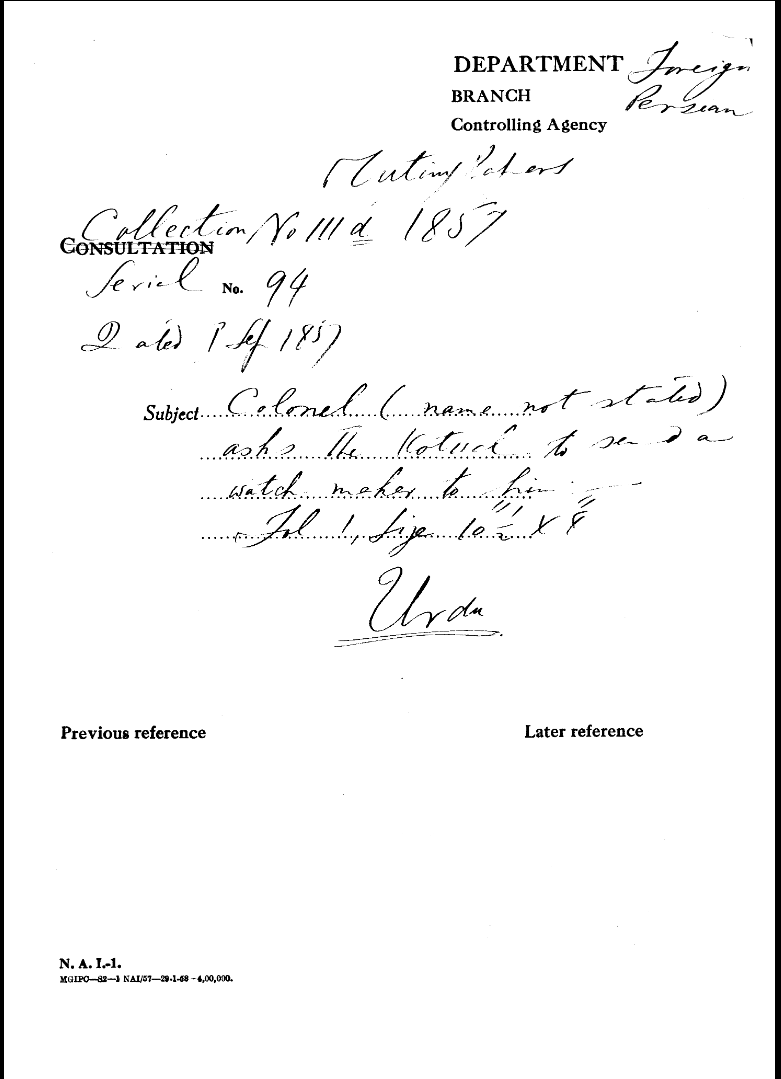 DEPARTMENT Foreign
BRANCH Persian
Controlling Agency
Mutiny Papers
Collection No III d 1857
CONSULTATION
Serial No. 94
Dated 1 Sep 1857
Subject Colonel (name not stated)
asks the Kotwal to send a
watch maker to him
Fol 1, Size 10½" X 8"
Urdu
Previous reference Later reference
N. A. I.-1.
MGIPC—S2—1 NAI/57—29-1-68—4,00,000.